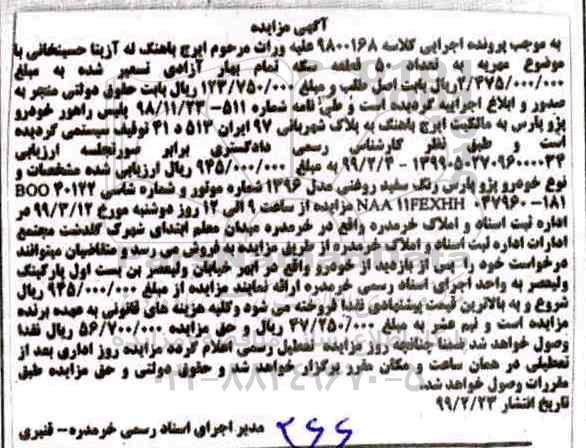 آگهی مزایده
به موجب پرونده اجرایی کلاسه ۹۸۰۰۱۶۸ علیه وراث مرحوم ایرج باهنگ له آزیتا حسینخانی با
موضوع مهریه به تعداد ۵۰ قطعه سکه تمام بهار آزادی تسعیر شده به مبلغ
۲/۴۷۵/۰۰۰/۰۰۰ریال بابت اصل طلب و مبلغ ۱۲۳/۷۵۰/۰۰۰ ریال بابت حقوق دولتی منجر به
صدور و ابلاغ اجراییه گردیده است و طی نامه شماره ۵۱۱- ۹۸/۱۱/۲۳ پلیس راهور خودرو
پژو پارس به مالکیت ایرج باهنگ به پلاک شهربانی ۹۷ ایران ۵۱۳ د ۴۱ توقیف سیستمی گردیده
است و طبق نظر کارشناس رسمی دادگستری برابر صورتجلسه ارزیابی
۱۳۹۹۰۵۰۲۷۰۹۶۰۰۰۰۳۴ - ۹۹/۲/۴ به مبلغ ۹۴۵/۰۰۰/۰۰۰ ریال ارزیابی شده مشخصات و
نوع خودرو پژو پارس رنگ سفید روغنی مدل ۱۳۹۶ شماره موتور و شماره شاسی BOO ۴۰۱۲۲
۱۸۱- ۰۴۷۹۶۰ NAA ۱۱FEXHH مزایده از ساعت ۹ الی ۱۲ روز دوشنبه مورخ ۹۹/۳/۱۲ در
اداره ثبت اسناد و املاک خرمدره واقع در خرمدره میدان معلم ابتدای شهرک گلدشت مجتمع
ادارات اداره ثبت اسناد و املاک خرمدره از طریق مزایده به فروش می رسد و متقاضیان میتوانند
درخواست خود را پس از بازدید از خودرو واقع در ابهر خیابان ولیعصر بن بست اول پارکینگ
ولیعصر به واحد اجرای اسناد رسمی خرمدره ارائه نمایند مزایده از مبلغ ۹۴۵/۰۰۰/۰۰۰ ریال
شروع و به بالاترین قیمت پیشنهادی نقدا فروخته می شود وکلیه هزینه های قانونی به عهده برنده
مزایده است و نیم عشر به مبلغ ۴۷/۲۵۰/۰۰۰ ریال و حق مزایده ۵۶/۷۰۰/۰۰۰ ریال نقدا
وصول خواهد شد ضمنا چنانچه روز مزایده تعطیل رسمی اعلام گردد مزایده روز اداری بعد از
تعطیلی در همان ساعت و مکان مقرر برگزار خواهد شد و حقوق دولتی و حق مزایده طبق
مقررات وصول خواهد شد.
تاریخ انتشار ۹۹/۲/۲۳
مدیر اجرای اسناد رسمی خرمدره- قنبری
۲۶۶